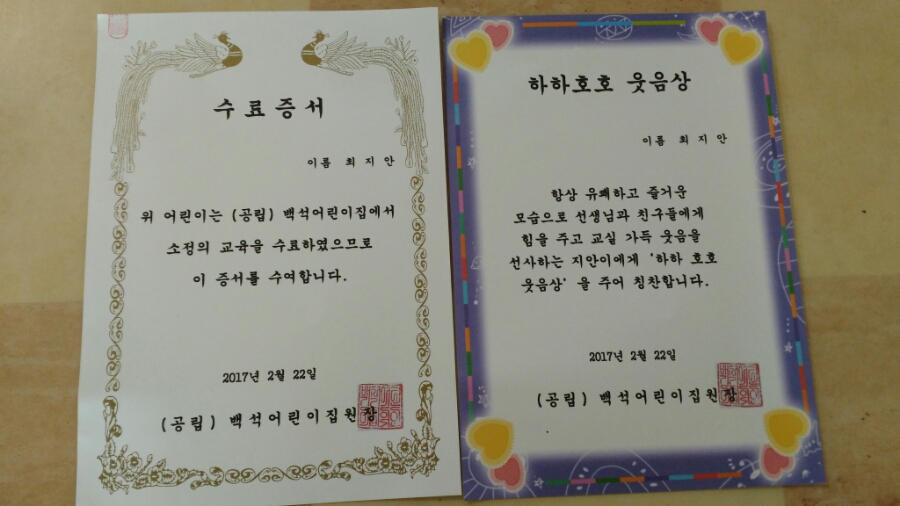 수료증서
이름 최 지 안
위 어린이는 (공립) 백석어린이집에서
소정의 교육을 수료하였으므로
이 증서를 수여합니다.
2017년 2월 22일
(공립) 백석어린이집원장
하하호호 웃음상
이름 최 지 안
항상 유쾌하고 즐거운
모습으로 선생님과 친구들에게
힘을 주고 교실 가득 웃음을
선사하는 지안이에게 '하하 호호
웃음상' 을 주어 칭찬합니다.
2017년 2월 22일
(공립) 백석어린이집원장